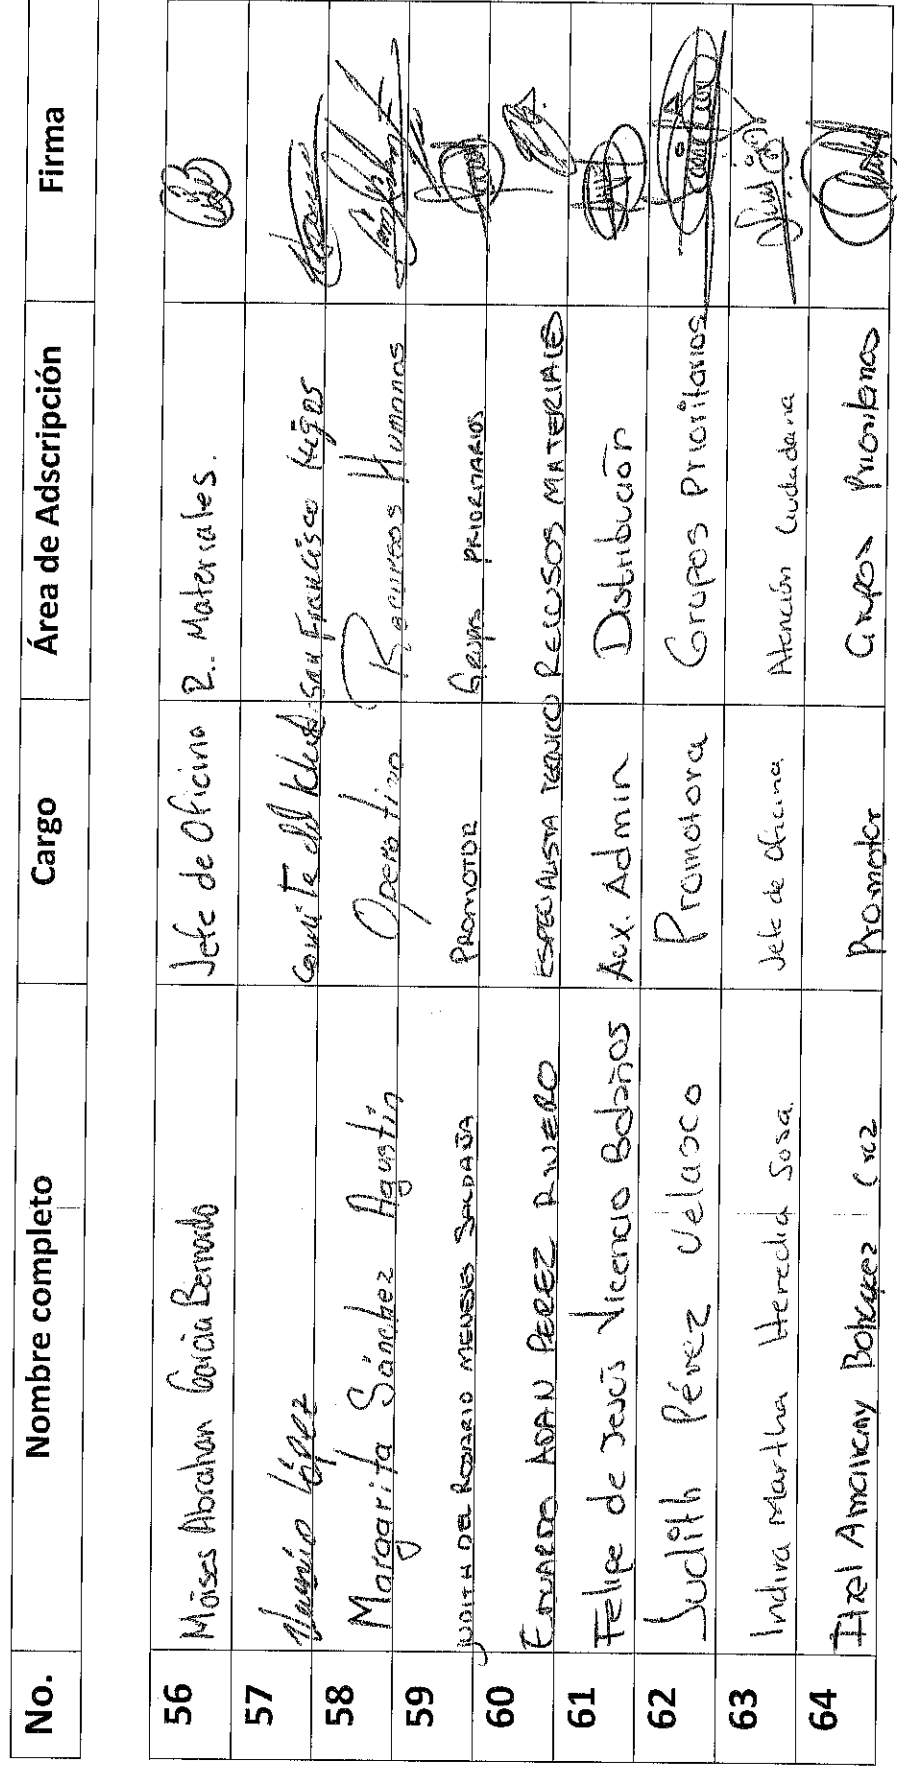 No. Nombre completo Cargo Área de Adscripción Firma
56 Moises Abrahan Garcia Bernardo Jefe de Oficina R.. Materiales.
57 López San Francisco
58 Margarita Sánchez Agustín Operativo Recursos Humanos
59 JUDITH DEL ROSARIO MENESES SALDAÑA PROMOTOR GRUPOS PRIORITARIOS
60 EDUARDO ADAN PEREZ RIVERO ESPECIALISTA TECNICO RECUSOS MATERIALES
61 Felipe de Jesús Vicencio Bolaños Aux. Admin Distribución
62 Judith Pérez Velasco Promotora Grupos Prioritarios
63 Indira Martha Heredia Sosa. Jefe de Oficina Atención Ciudadana
64 Itzel Promotor Grupos Prioritarios